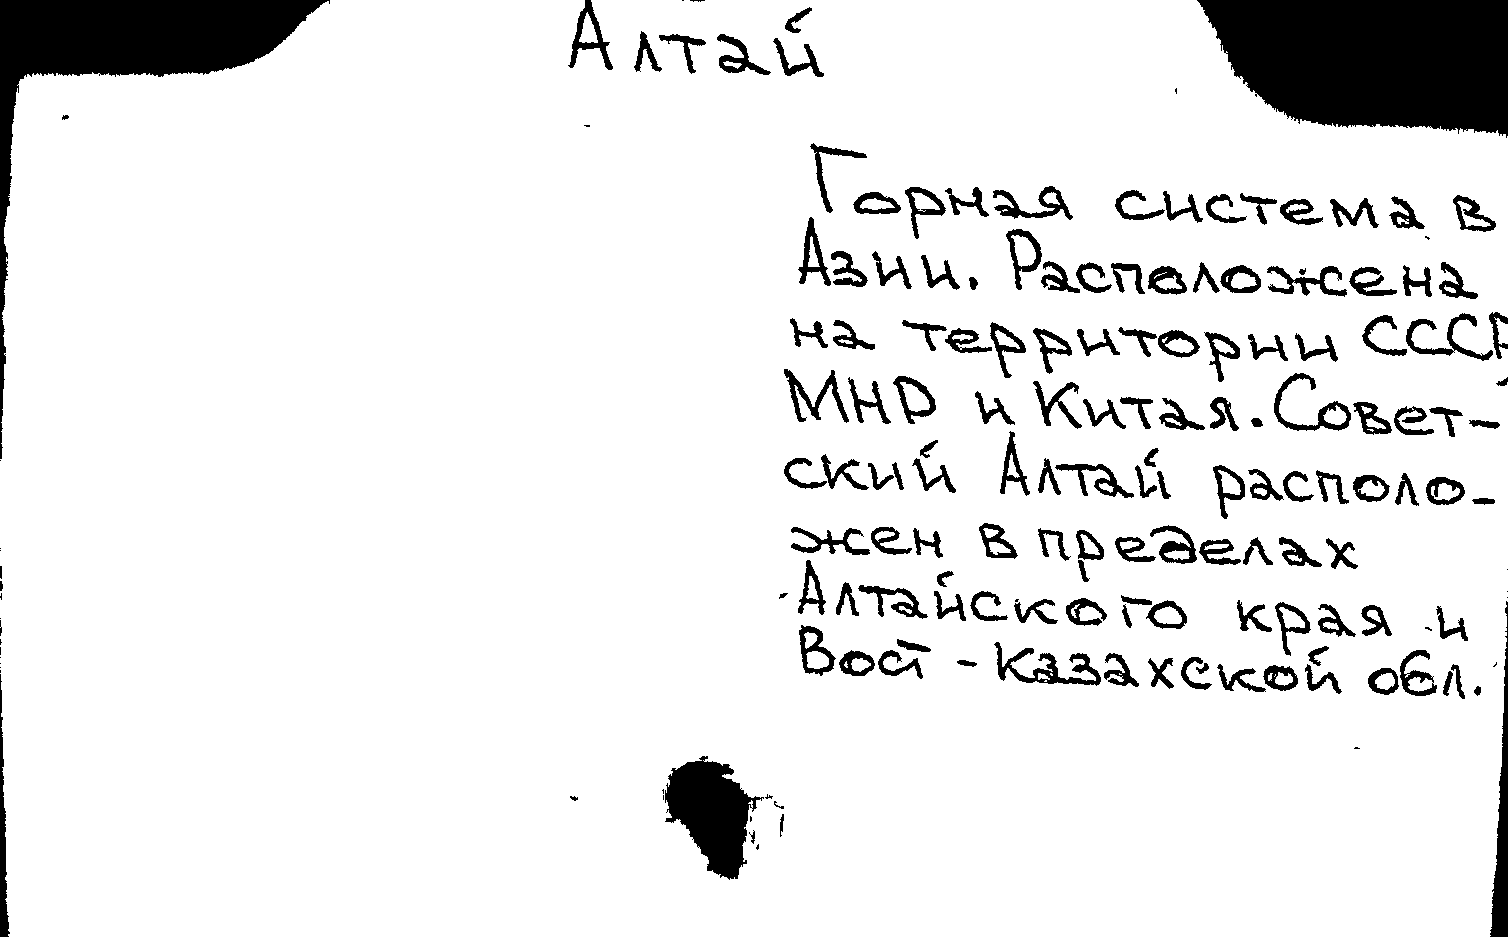 Алтай
Горная система в
Азии. Расположена
на территории СССР,
МНР и Китая. Совет-
ский Алтай располо-
жен в пределах
Алтайского края и
Вост - Казахской обл.